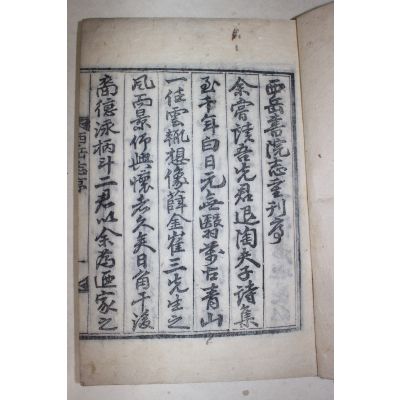 西岳書院志重刊序
余嘗讀吾先君退陶夫子詩集
至千年白日元無翳萬古青山
一任雲輒想像薛金崔三先生之
風而景仰興懷者久矣日角干後
裔德泳柄斗二君以余爲
家之
西岳志序